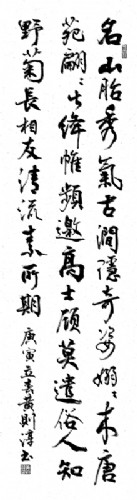 名山胎秀氣古澗隱奇姿嫋嫋末唐
苑翩翩出絳帷頻邀高士顧莫遣俗人知
野菊長相友清流素所期 庚寅立春黃則淳書